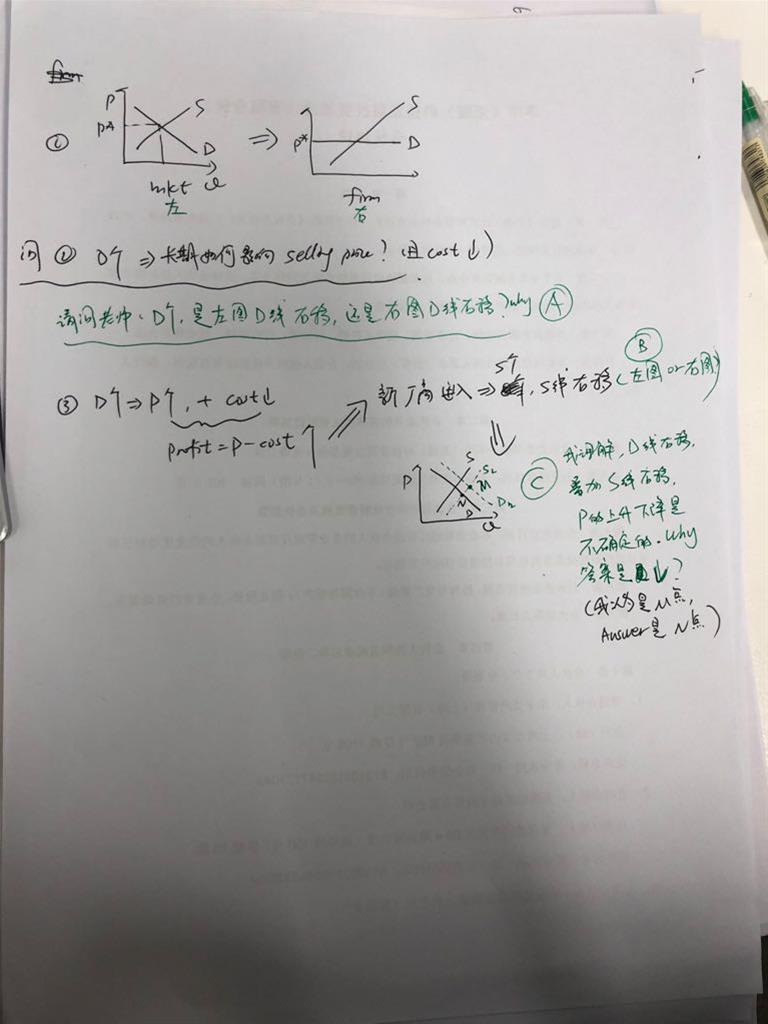 ① P P* S D Q ⇒ P* S D
mkt firm
左 右
问 ② D↑ ⇒ 长期如何影响 selling price? (且 cost↓)
请问老师: D↑, 是左图D线右移, 还是右图D线右移? why Ⓐ
③ D↑⇒P↑, + cost↓
profit = P - cost ↑
新厂商进入 ⇒ S↑, S线右移 (左图 or 右图) Ⓑ
P S S2 M N D D2 Q
Ⓒ 我理解, D线右移,
叠加S线右移,
P的上升下降是
不确定的. why
答案是↓?
(我以为是M点,
Answer是N点)